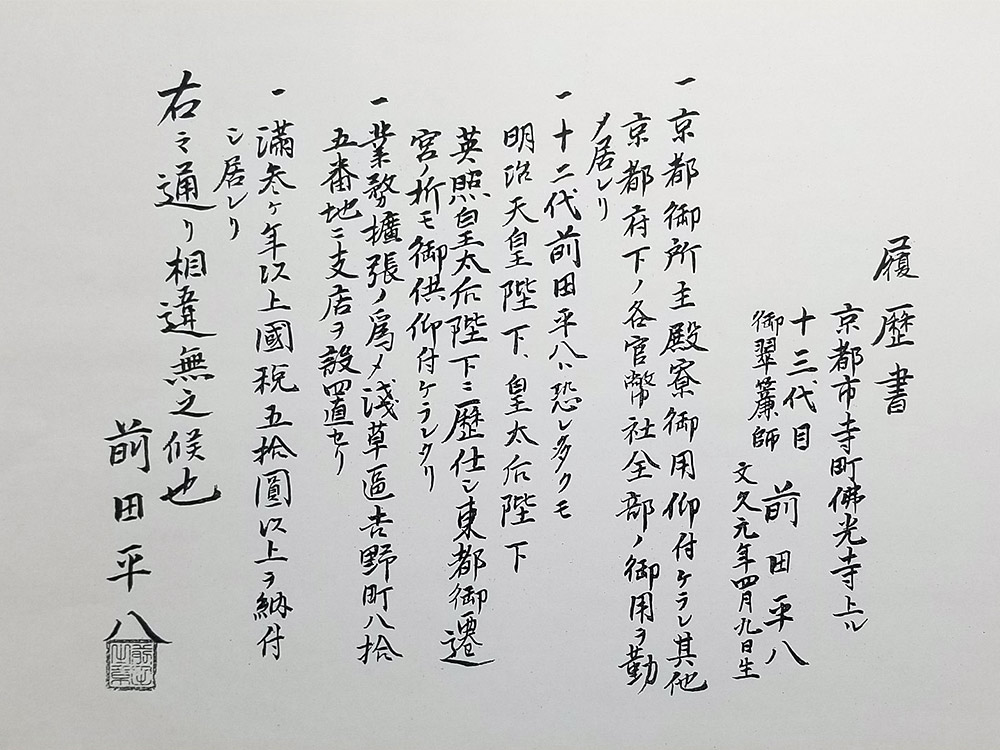 履歴書
京都市寺町佛光寺上ル
十三代目 前田平八
御翠簾師 文久元年四月九日生
一 京都御所主殿寮御用仰付ケラレ其他
京都府下ノ各官幣社全部ノ御用ヲ勤
メ居レリ
一 十二代前田平八ハ恐レ多クモ
明治天皇陛下、皇太后陛下
英照皇太后陛下ニ歴仕シ東都御遷
宮ノ折モ御供仰付ケラレタリ
一 業務擴張ノ為メ淺草區吉野町八拾
五番地ニ支店ヲ設置セリ
一 滿叁ヶ年以上國税五拾圓以上ヲ納付
シ居レリ
右之通リ相違無之候也
前田平八